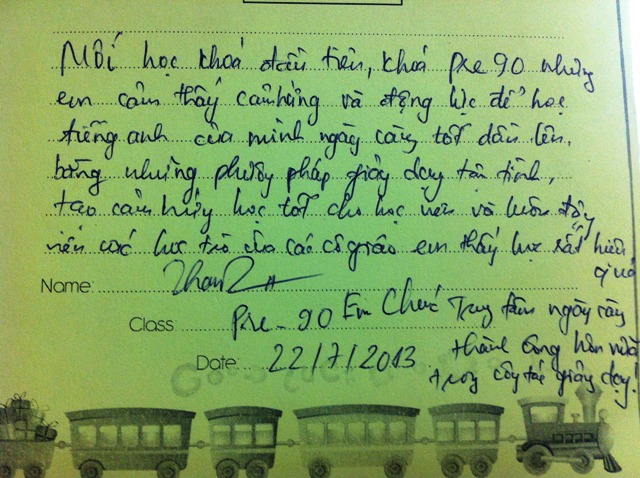 Mới học khoá đầu tiên, khoá pre 90 nhưng
em cảm thấy cảm hứng và động lực để học
tiếng anh của mình ngày càng tốt dần lên,
bằng những phương pháp giảng dạy tận tình,
tạo cảm hứng học tốt cho học viên và luôn động
viên các học trò của các cô giáo em thấy học rất hiệu
quả
Name:
Class: Pre - 90
Date: 22/7/2013
Em Chúc Trung tâm ngày càng
thành công hơn nữa
trong công tác giảng dạy.
Good Luck